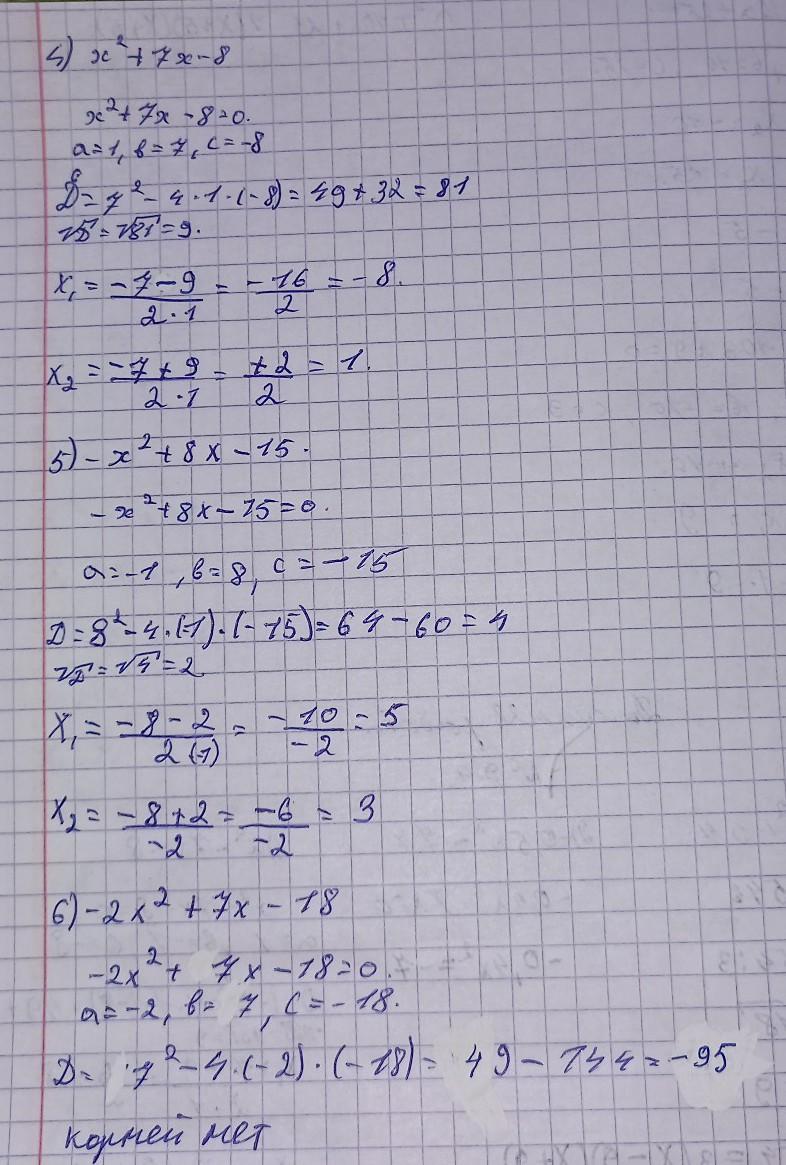 4) x² + 7x - 8
x² + 7x - 8 = 0.
a = 1, b = 7, c = -8
D = 7² - 4 · 1 · (-8) = 49 + 32 = 81
√D = √81 = 9.
x₁ = (-7 - 9)/(2 · 1) = -16/2 = -8.
x₂ = (-7 + 9)/(2 · 1) = +2/2 = 1.
5) -x² + 8x - 15.
-x² + 8x - 15 = 0.
a = -1, b = 8, c = -15
D = 8² - 4 · (-1) · (-15) = 64 - 60 = 4
√D = √4 = 2
x₁ = (-8 - 2)/(2(-1)) = -10/-2 = 5
x₂ = (-8 + 2)/-2 = -6/-2 = 3
6) -2x² + 7x - 18
-2x² + 7x - 18 = 0.
a = -2, b = 7, c = -18.
D = 7² - 4 · (-2) · (-18) = 49 - 144 = -95
корней нет